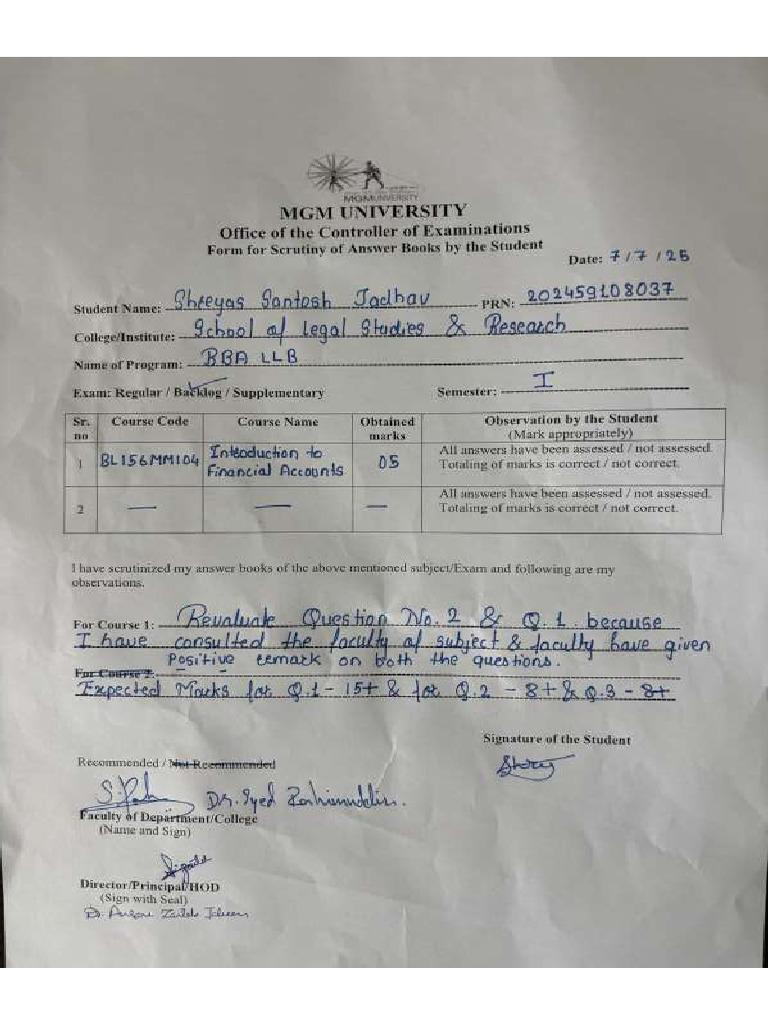 MGMUNIVERSITY
MGM UNIVERSITY
Office of the Controller of Examinations
Form for Scrutiny of Answer Books by the Student
Date: 7/7/25
Student Name: Shreyas Santosh Jadhav PRN: 202459108037
College/Institute: School of Legal Studies & Research
Name of Program: BBA LLB
Exam: Regular / Backlog / Supplementary Semester: I
Sr. no Course Code Course Name Obtained marks Observation by the Student (Mark appropriately)
1 BL156MM104 Introduction to Financial Accounts 05 All answers have been assessed / not assessed. Totaling of marks is correct / not correct.
2 — — — All answers have been assessed / not assessed. Totaling of marks is correct / not correct.
I have scrutinized my answer books of the above mentioned subject/Exam and following are my
observations.
For Course 1: Revaluate Question No. 2 & Q.1 because
I have consulted the faculty of subject & faculty have given
Positive remark on both the questions.
For Course 2:
Expected Marks for Q.1 - 15+ & for Q.2 - 8+ & Q.3 - 8+
Signature of the Student
Recommended / Not Recommended
Dr. Syed
Faculty of Department/College
(Name and Sign)
Director/Principal/HOD
(Sign with Seal)
Dr.